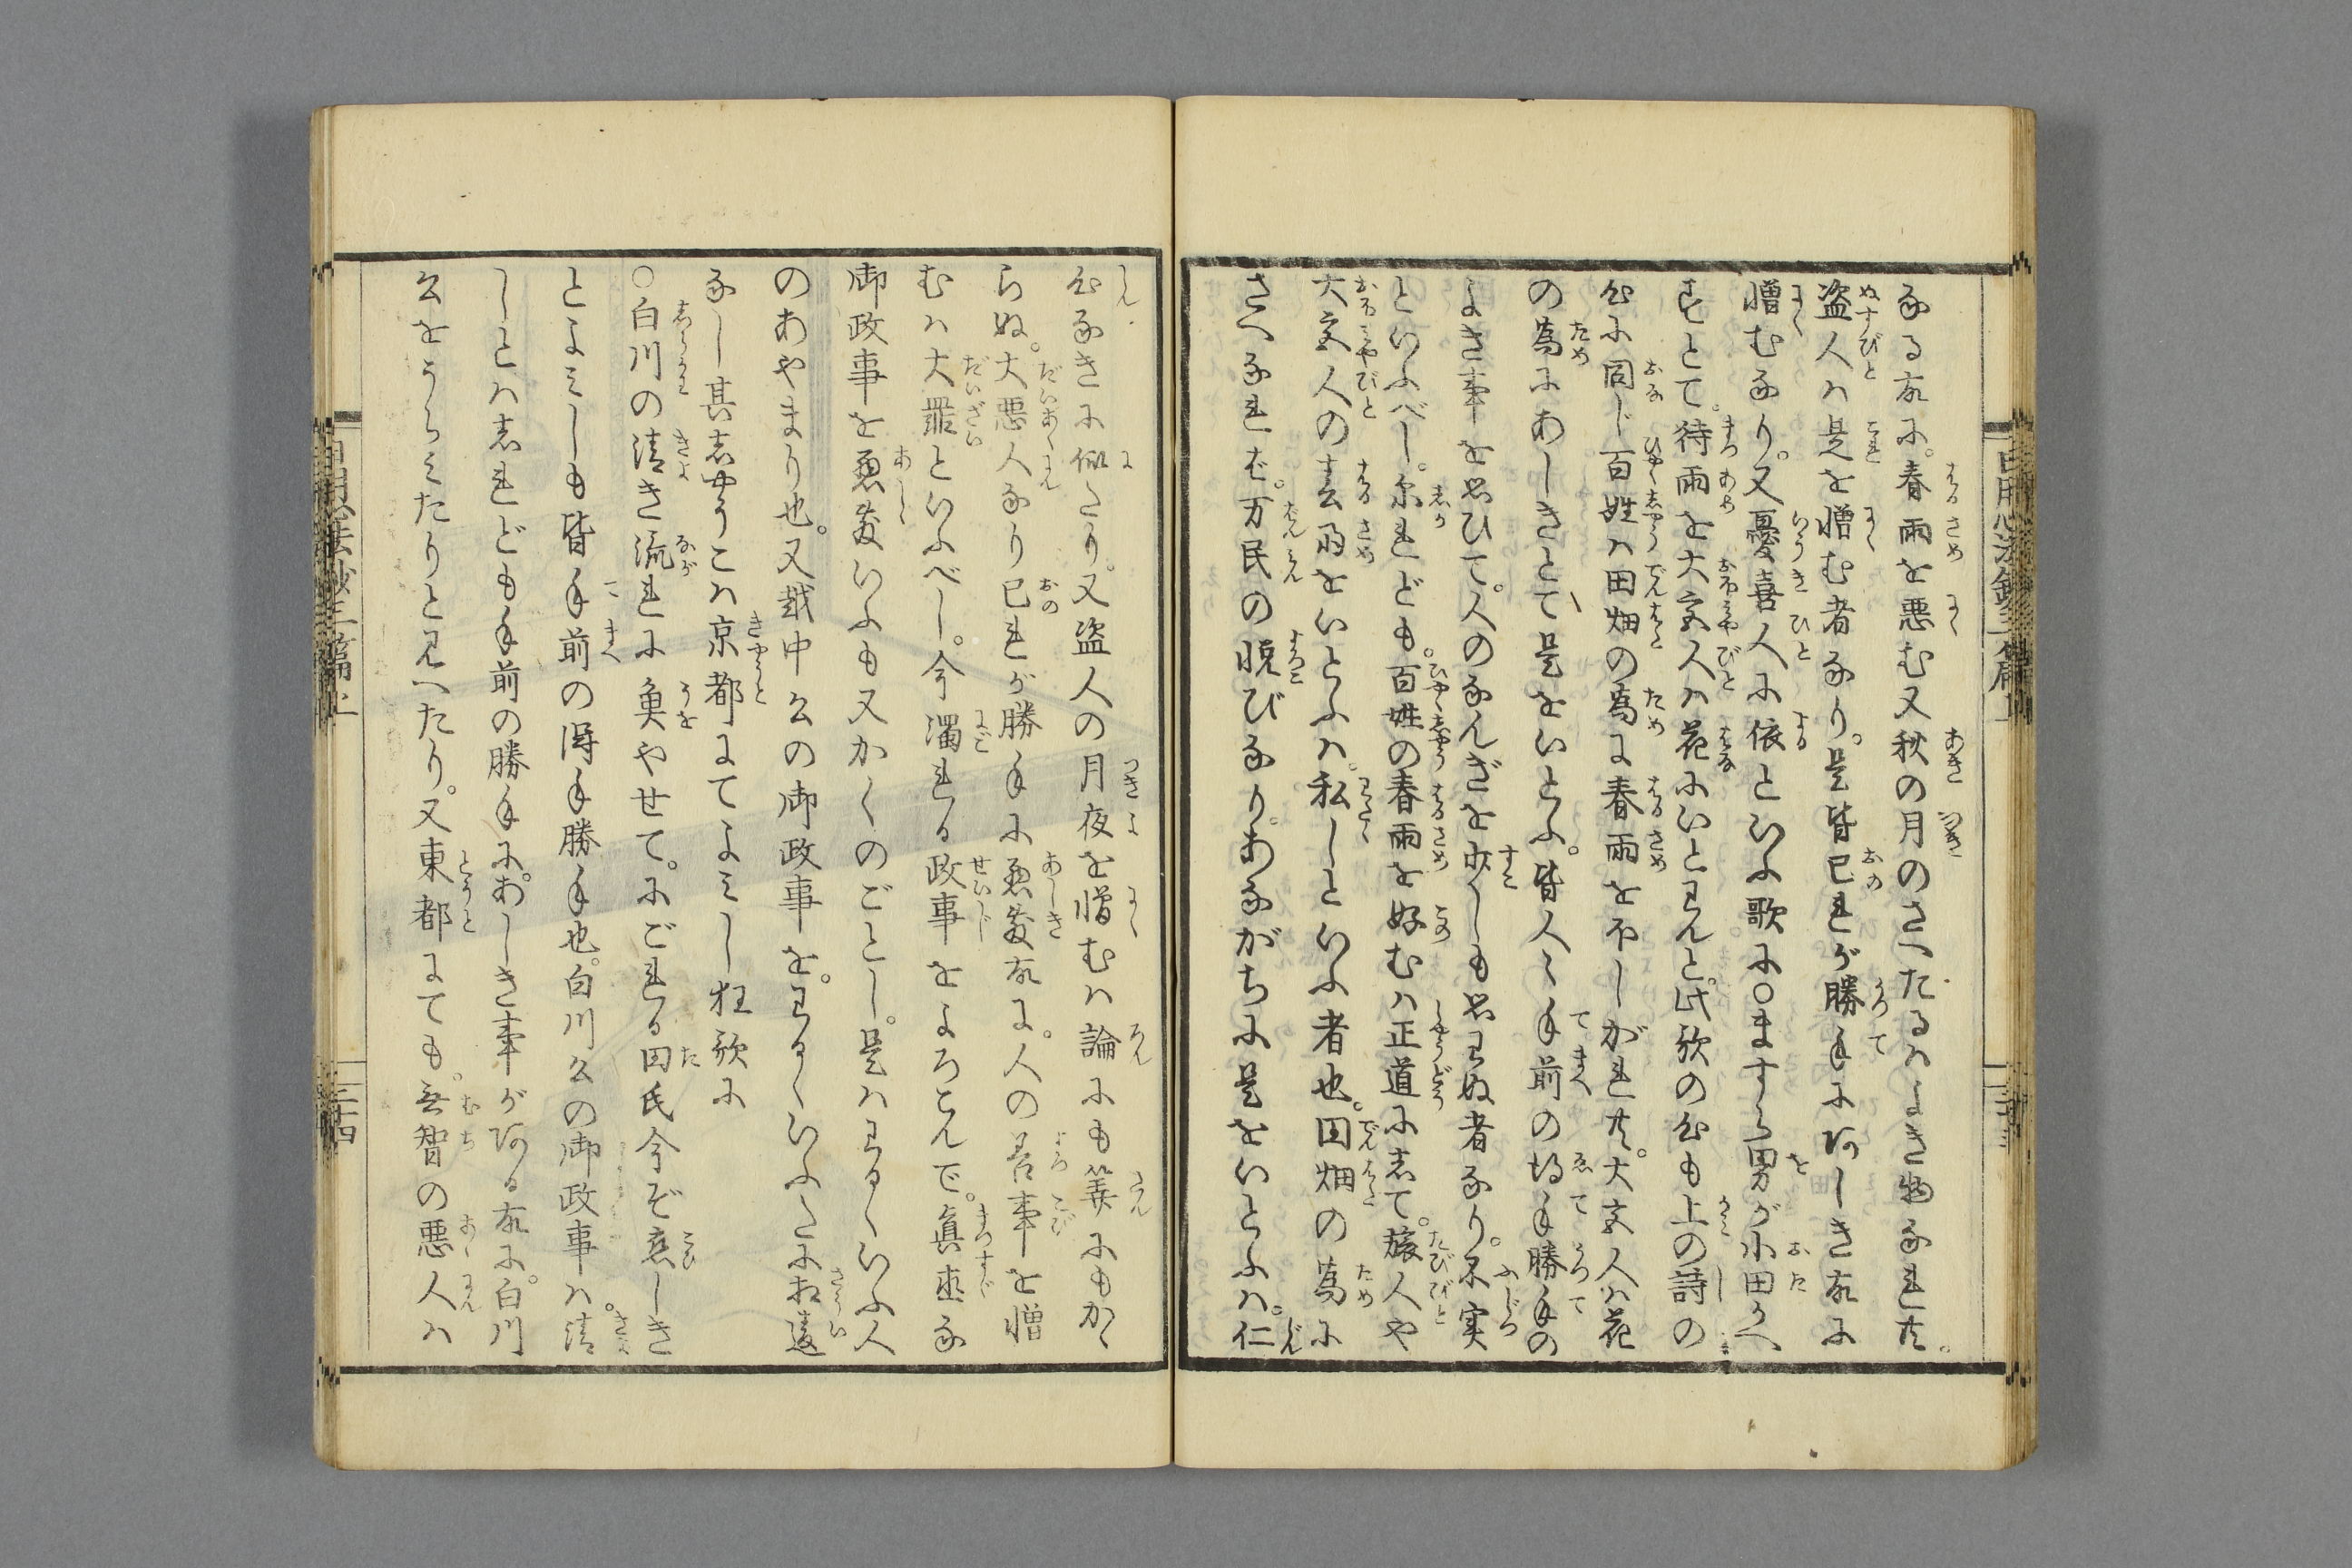 なる故に。春雨を悪む又秋の月のさへたるハよき物なれ共。
盗人ハ是を憎む者なり。是皆己れが勝手に阿しき故に
憎むなり。又憂喜人に依といふ歌に○ますら男が小田かへ
すとて。待雨を大宮人ハ花にいとわんと。此歌の心も上の詩の
心に同じ百姓ハ田畑の為に春雨をほしがれ共。大宮人ハ花
の為にあしきとて是をいとふ。皆人〻手前の得手勝手の
よき事を思ひて。人のなんぎを少しも思わぬ者なり。不実
といふべし。尓れども。百姓の春雨を好むハ正道に志て。旅人や
大宮人の春雨をいとふハ。私しといふ者也。田畑の為に
さへなれば。万民の悦びなり。あながちに是をいとふハ。仁
心なきに似たり。又盗人の月夜を憎むハ論にも算にもかゝ
らぬ。大悪人なり己れが勝手に悪敷故に。人の善事を憎
むハ大罪といふべし。今濁れる政事をよろこんで。真直な
御政事を悪敷いふも又かくのごとし。是ハわるくいふ人
のあやまり也。又越中公の御政事を。わるくいふたに相違
なし其志やうこハ京都にてよミし狂歌に
○白川の清き流れに魚やせて。にごれる田氏今ぞ恋しき
とよミしも皆手前の得手勝手也。白川公の御政事ハ。清
しとハ志れども手前の勝手に。あしき事が阿る故に。白川
公をうらミたりと見へたり。又東都にても。無智の悪人ハ
日用心法鈔三篇上
三十三
日用心法鈔三篇上
三十四